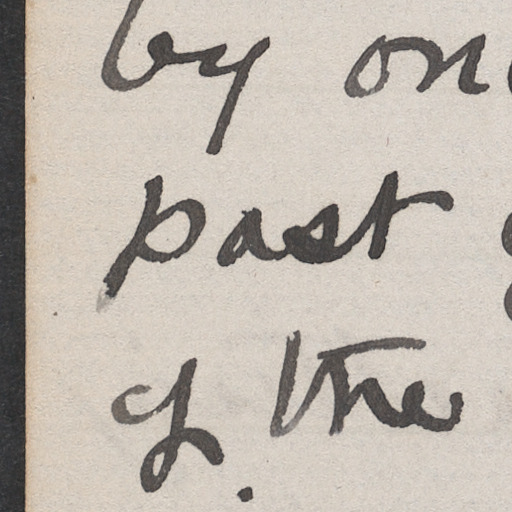 by on
past
of the